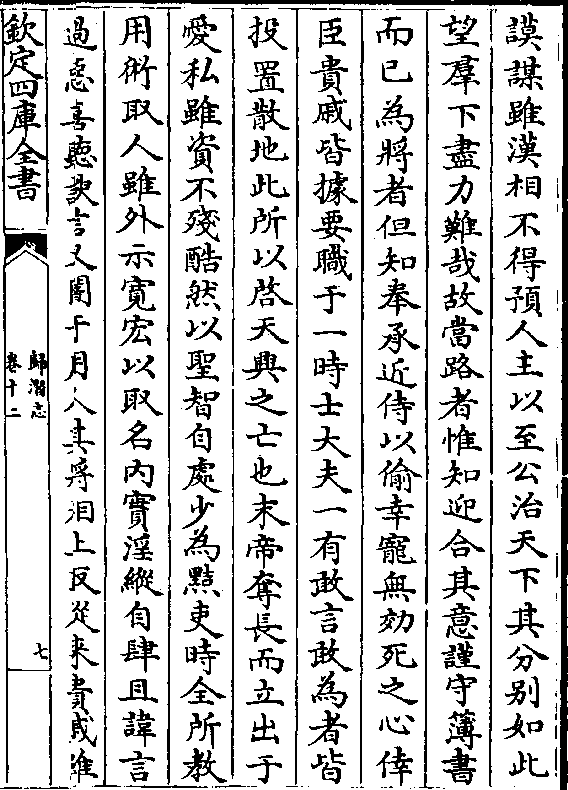 謨謀雖漢相不得預人主以至公治天下其分别如此
望羣下盡力難哉故當路者惟知迎合其意謹守簿書
而已為將者但知奉承近侍以偷幸寵無効死之心倖
臣貴戚皆據要職于一時士大夫一有敢言敢為者皆
投置散地此所以啓天興之亡也末帝奪長而立出于
愛私雖資不殘酷然以聖智自處少為黠吏時全所教
用術取人雖外示寛宏以取名内實淫縱自肆且諱言
過惡喜聽諛言又闇于用人其將相止取從來貴戚雖
欽定四庫全書
歸潛志
卷十二
七